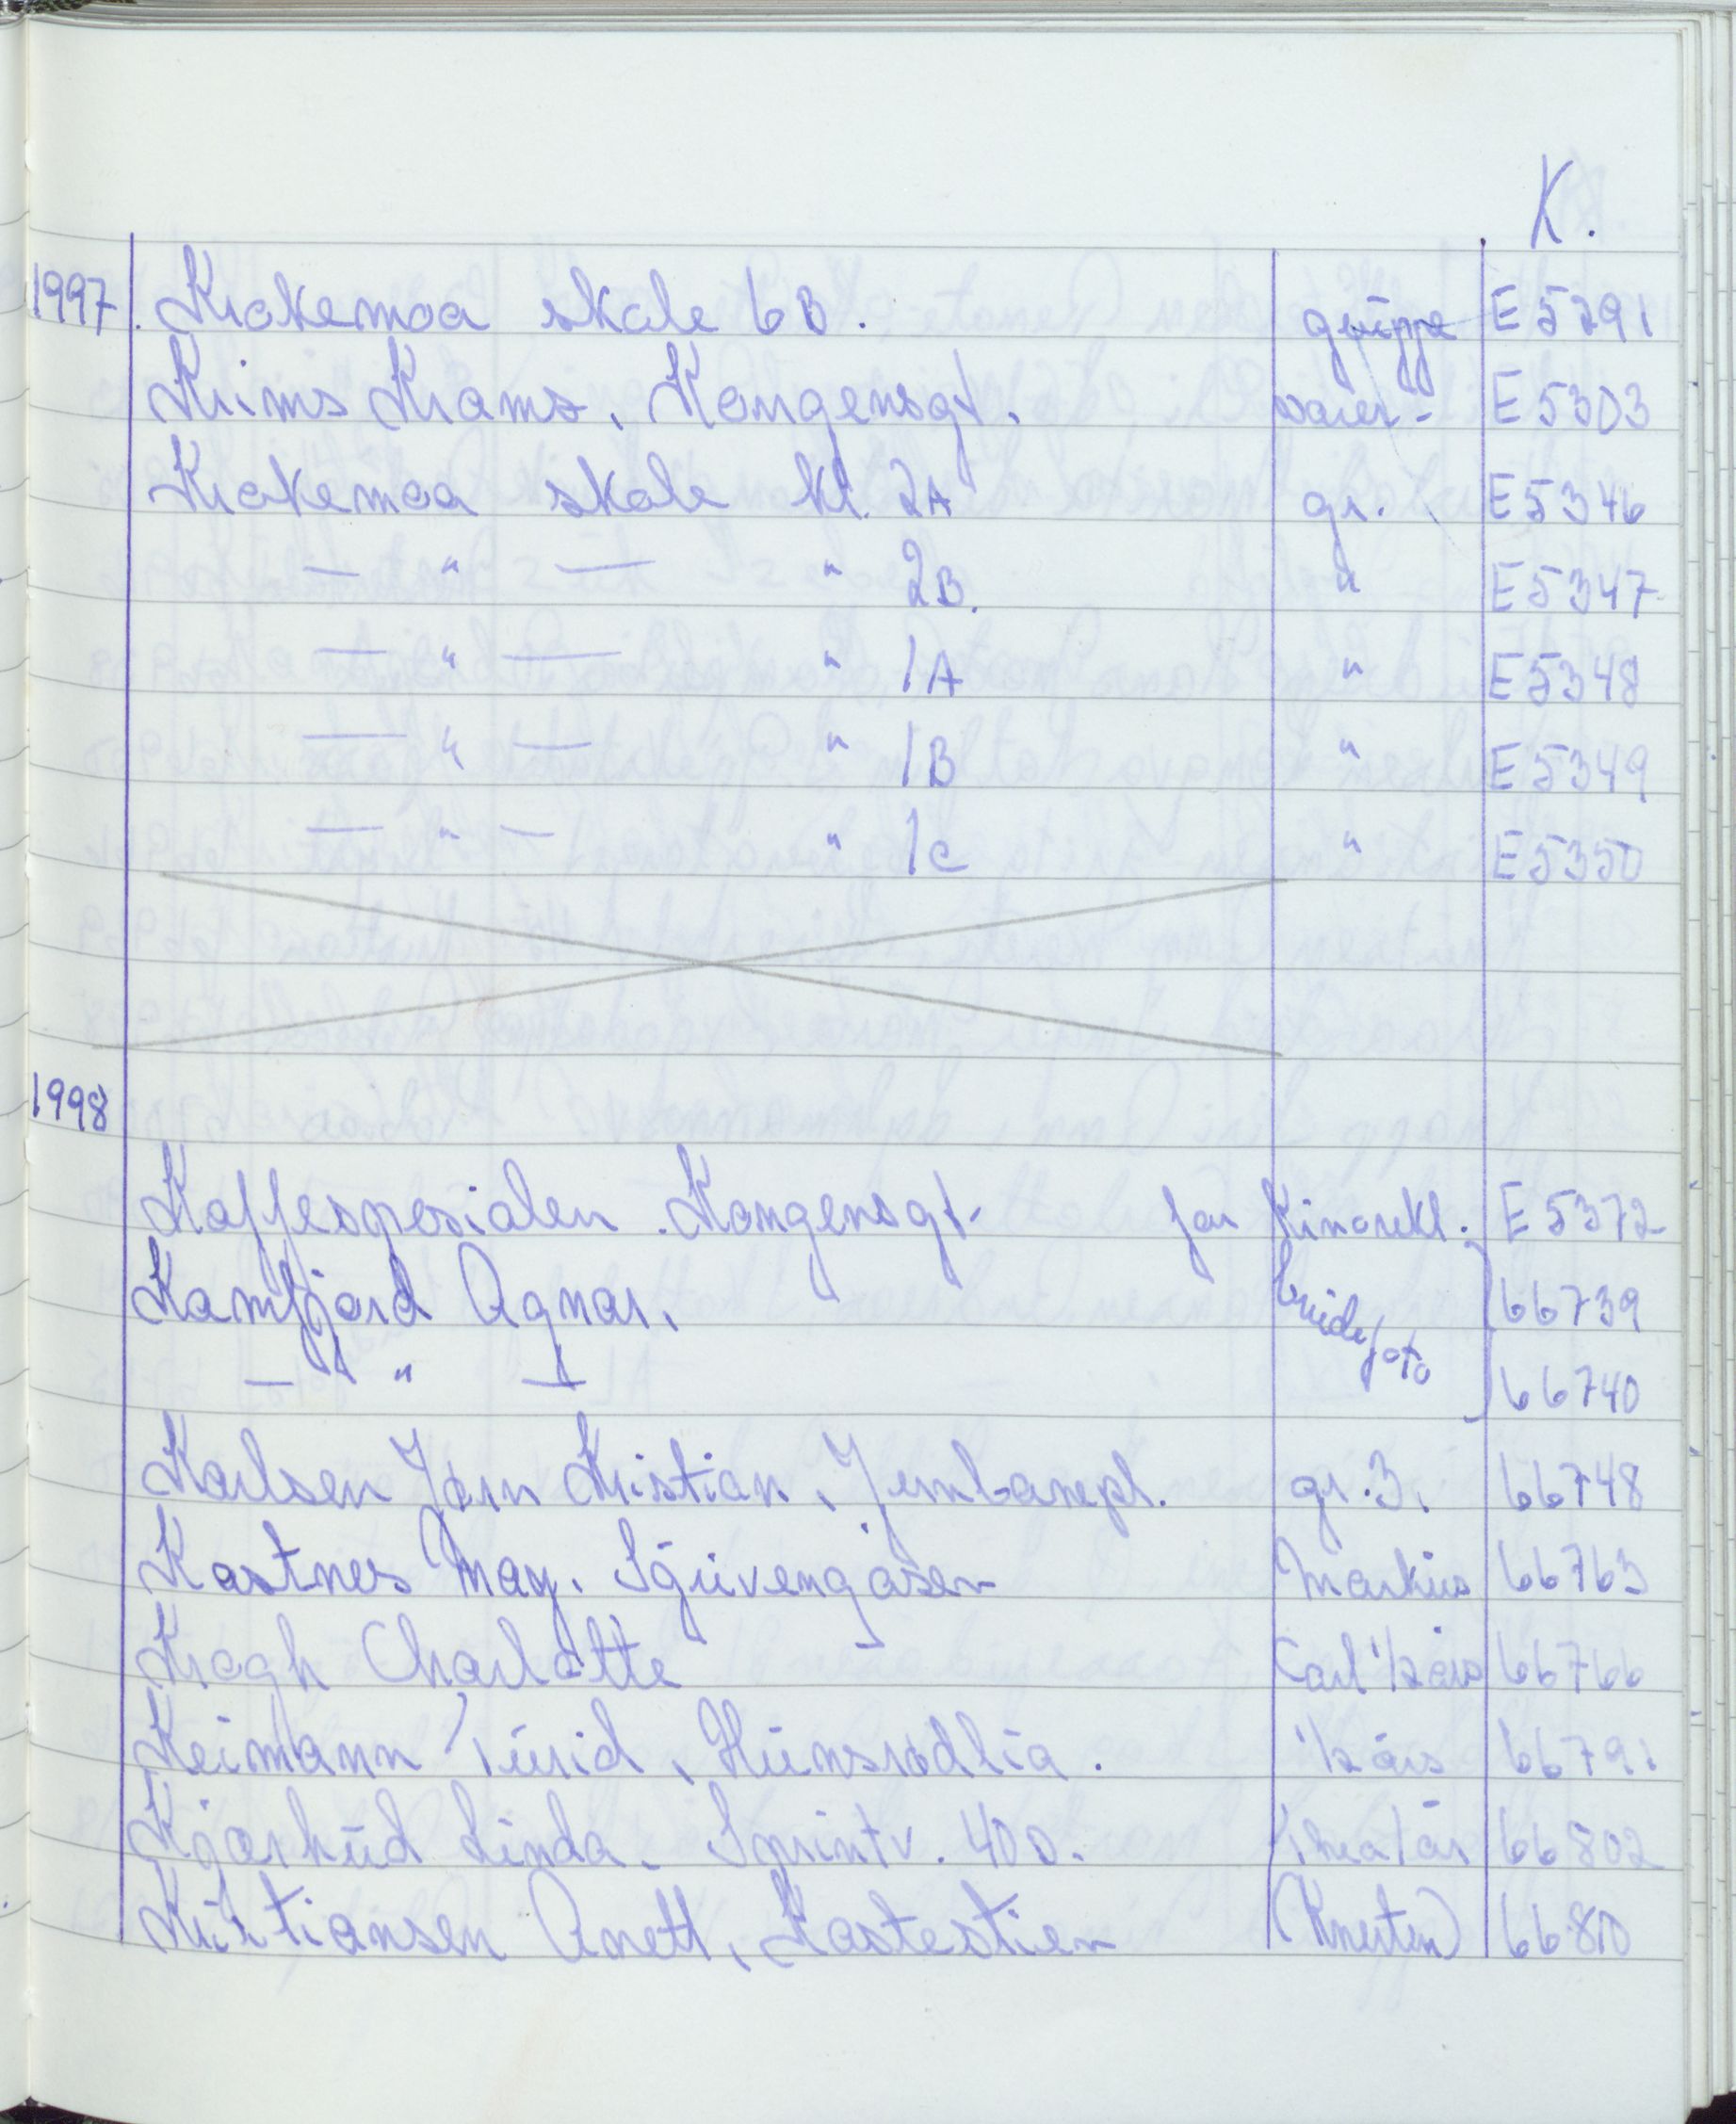 K.
1997. Krokemoa skole 6B. gruppe E5291
Krims Krams, Kongensgt. varer- E5303
Krokemoa skole kl. 2A gr. E5346
— " — " 2B. " E5347
— " — " 1A " E5348
— " — " 1B " E5349
— " — " 1C " E5350
1998
Kaffespesialen. Kongensgt. for Kinorekl. E5372
Kamfjord Agnar, brudefoto 66739
— " — 66740
Karlsen Jörn Kristian, Jernbanepl. gr. 3. 66748
Kastnes May. Igüvengåsen Markus 66763
Krogh Charlotte Carl 1/2 års 66766
Keimann Turid, Hunsrødlia. 1/2 års 66791
Kjærhüd Linda. Sprintv. 40D. Thea 1 år 66802
Kristiansen Anett, Kastestien (Knerten) 66810